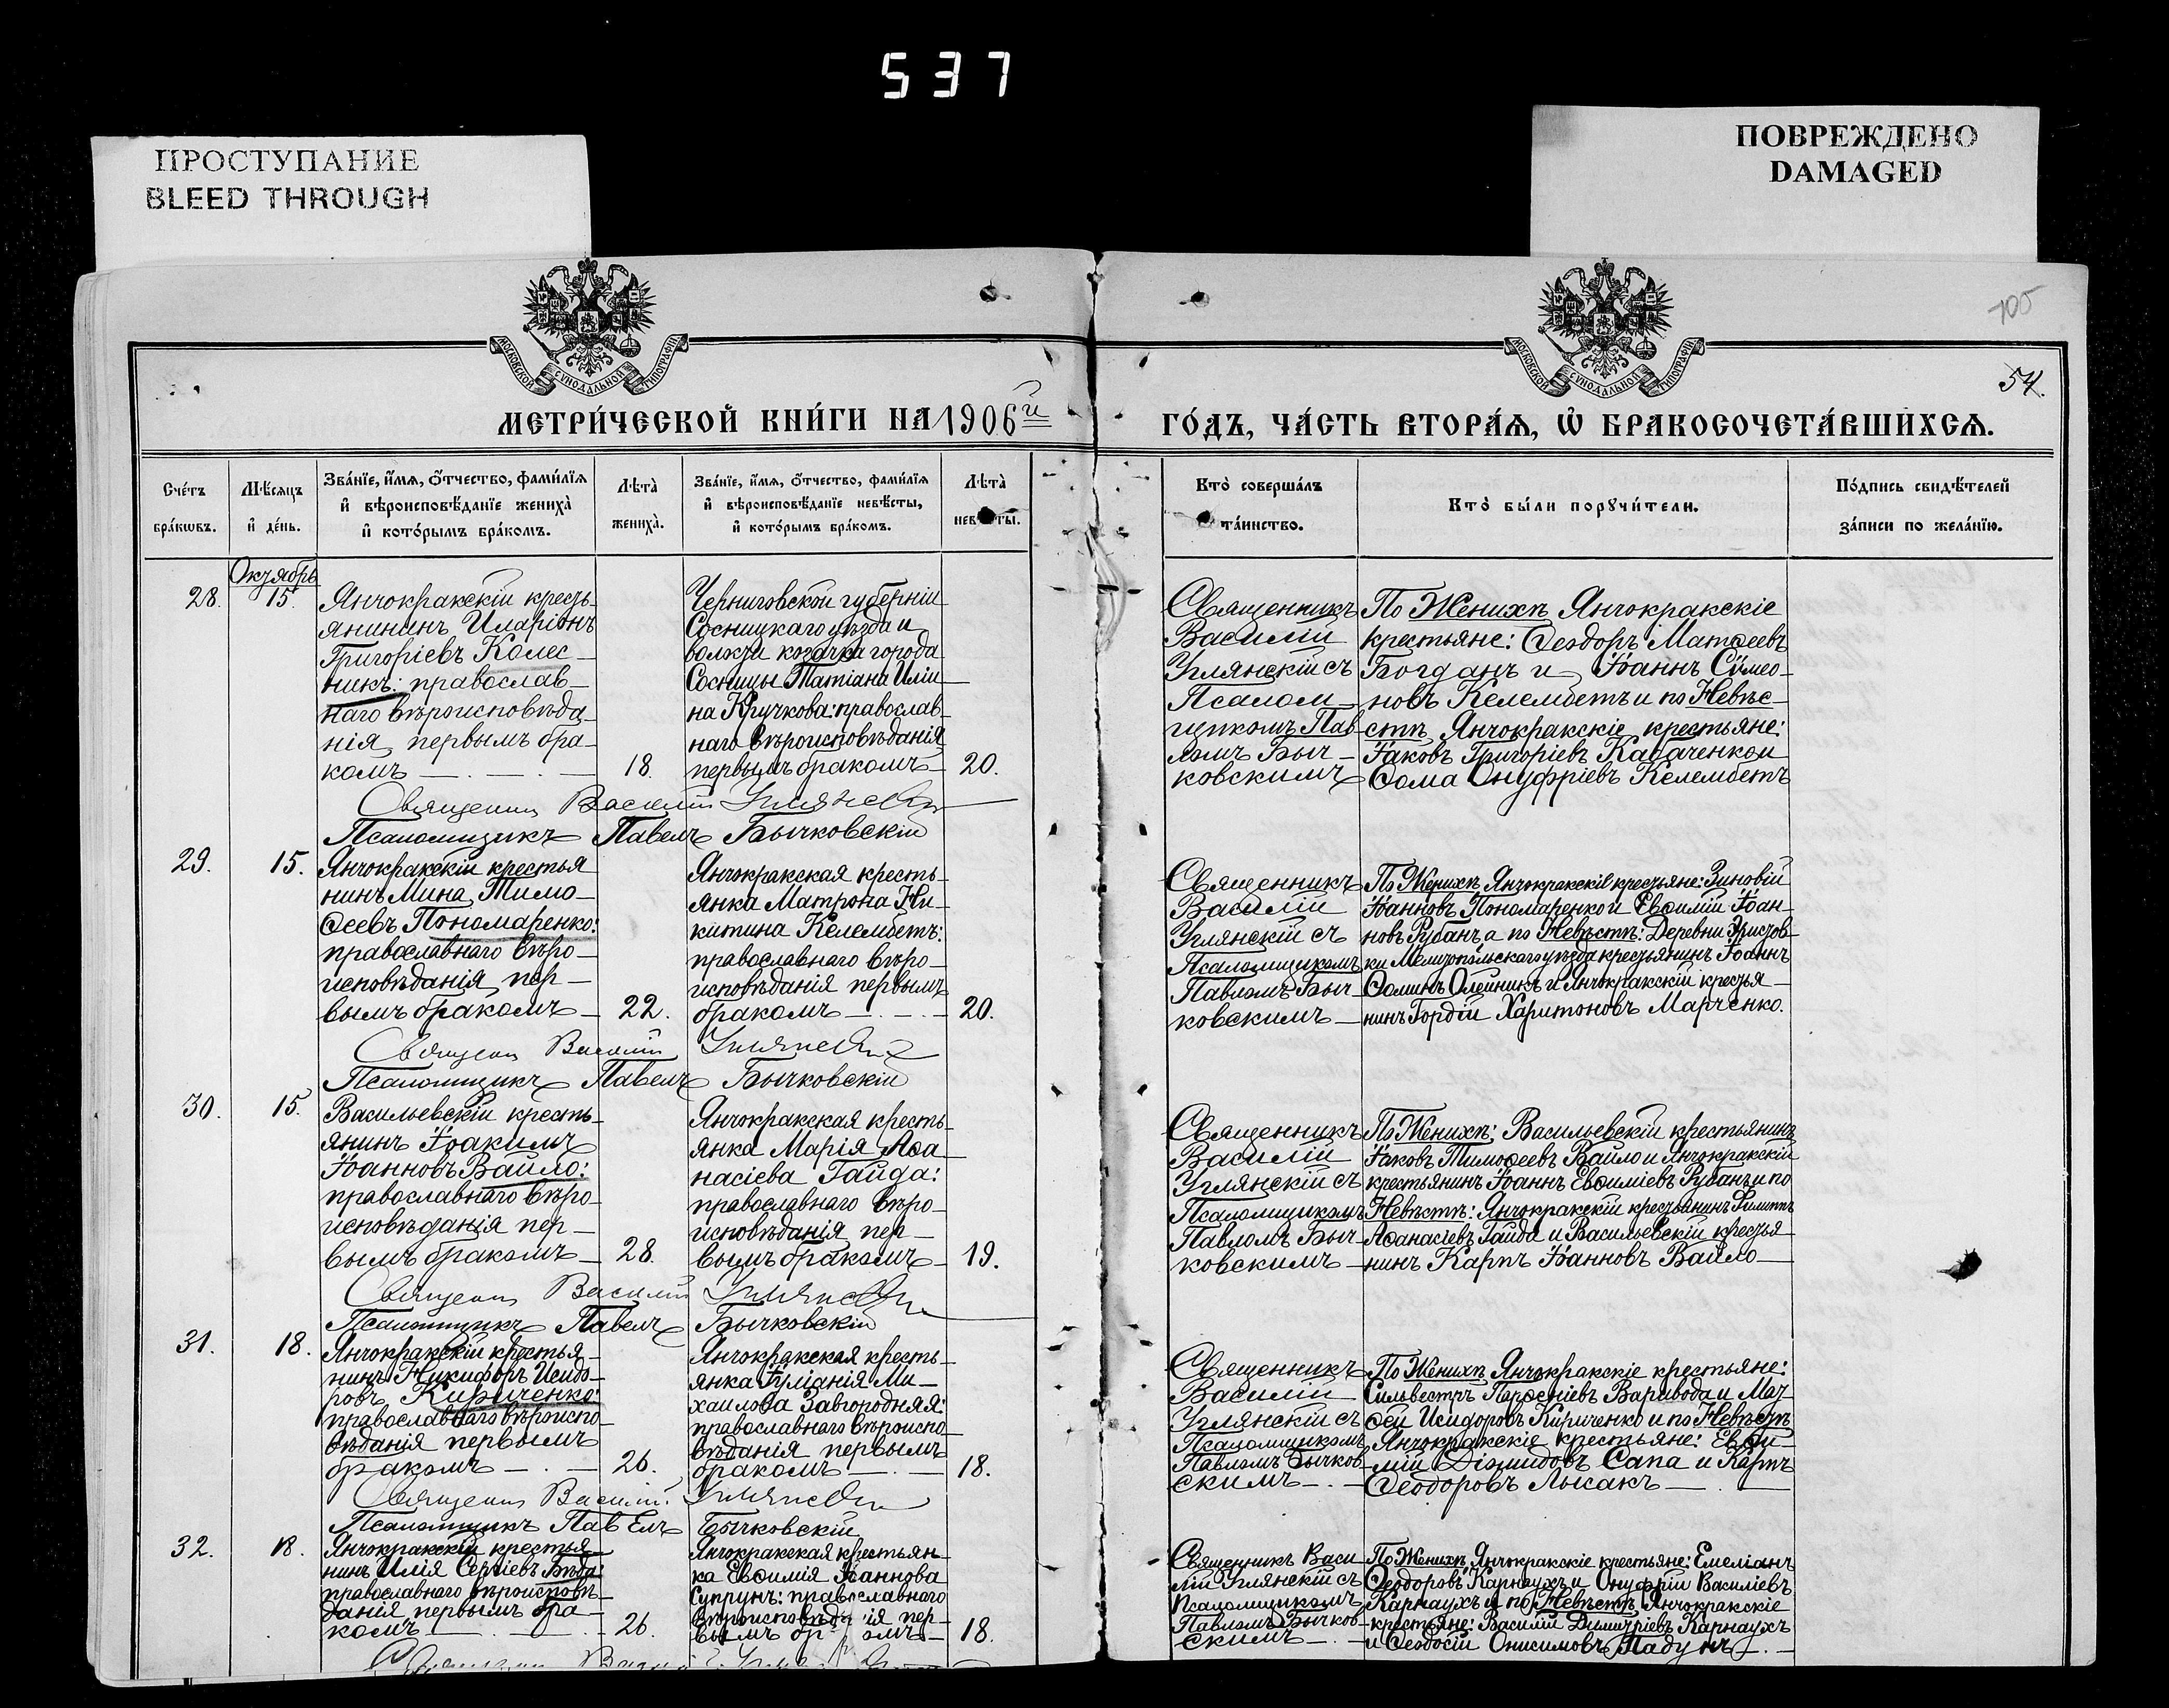 537
ПРОСТУПАНИЕ
BLEED THROUGH
ПОВРЕЖДЕНО
DAMAGED
105
54.
МОСКОВСКОЙ СУНОДАЛЬНОЙ ТИПОГРАФІИ
МОСКОВСКОЙ СУНОДАЛЬНОЙ ТИПОГРАФІИ
МЕТРИ́ЧЕСКОЙ КНИ́ГИ НА 1906й
ГО́ДЪ, ЧА́СТЬ ВТОРА́Ѧ, Ѡ БРАКОСОЧЕТА́ВШИХСѦ.
Сче́тъ
бра́кѡвъ.
Мѣ́сяцъ
и де́нь.
Зва́нїе, и́мѧ, о́тчество, фами́лїѧ
и вѣроисповѣ́данїе жениха̀
и кото́рымъ бра́комъ.
Лѣта̀
жениха̀.
Зва́нїе, и́мѧ, о́тчество, фами́лїѧ
и вѣроисповѣ́данїе невѣ́сты,
и кото́рымъ бра́комъ.
Лѣта̀
невѣсты.
Кто̀ соверша́лъ
та́инство.
Кто̀ бы́ли порꙋчи́тели.
По́дпись свидѣ́телей
за́писи по жела́нїю.
Октябрь
28.
15.
Янчокракскій кресть-
янинъ Иларіонъ
Григоріевъ Колес-
никъ: православ-
наго вѣроисповѣда-
нія, первымъ бра-
комъ
18.
Черниговской губерніи
Сосницкаго уѣзда и
волости козачка города
Сосницы Татіана Иліи-
на Кручкова: православ-
наго вѣроисповѣданія
первымъ бракомъ
20.
Священникъ
Василій
Углянскій съ
Псалом-
щикомъ Пав-
ломъ Быч-
ковскимъ
По Женихѣ Янчокракскіе
крестьяне: Ѳеодоръ Матѳеевъ
Богданъ и Іоаннъ Сѵмео-
новъ Келембетъ и по Невѣс-
стѣ Янчокракскіе крестьяне:
Іаковъ Григоріевъ Кабаченко и
Ѳома Онуфріевъ Келембетъ
Священникъ Василій Углянскій
Псаломщикъ Павелъ Бычковскій
29.
15.
Янчокракскій крестья
нинъ Мина Тимо-
ѳеевъ Пономаренко:
православнаго вѣро-
исповѣданія, пер-
вымъ бракомъ
22.
Янчокракская кресть-
янка Матрона Ни-
китина Келембетъ:
православнаго вѣро-
исповѣданія первымъ
бракомъ
20.
Священникъ
Василій
Углянскій съ
Псаломщикомъ
Павломъ Быч-
ковскимъ
По Женихѣ Янчокракскіе крестьяне: Зиновій
Іоанновъ Пономаренко и Евѳимій Іоан-
новъ Рубанъ, а по Невѣстѣ: Деревни Христов-
ки Мелитопольскаго уѣзда крестьянинъ Іоаннъ
Ѳоминъ Олейникъ и Янчокракскій крестья-
нинъ Гордій Харитоновъ Марченко.
Священникъ Василій Углянскій
Псаломщикъ Павелъ Бычковскій
30.
15.
Васильевскій кресть-
янинъ Іоакимъ
Іоанновъ Вайло:
православнаго вѣро-
исповѣданія пер-
вымъ бракомъ
28.
Янчокракская кресть-
янка Марія Аѳа-
насіева Гайда:
православнаго вѣро-
исповѣданія пер-
вымъ бракомъ
19.
Священникъ
Василій
Углянскій съ
Псаломщикомъ
Павломъ Быч-
ковскимъ
По Женихѣ: Васильевскій крестьянинъ
Іаковъ Тимоѳеевъ Вайло и Янчокракскій
крестьянинъ Іоаннъ Евѳиміевъ Рубанъ и по
Невѣстѣ: Янчокракскій крестьянинъ Филиппъ
Аѳанасіевъ Гайда и Васильевскій крестья-
нинъ Карпъ Іоанновъ Вайло
Священникъ Василій Углянскій
Псаломщикъ Павелъ Бычковскій
31.
18.
Янчокракскій крестья-
нинъ Никифоръ Исидо-
ровъ Кириченко:
православнаго вѣроиспо-
вѣданія первымъ
бракомъ
26.
Янчокракская кресть-
янка Іуліанія Ми-
хаилова Завгородняя:
православнаго вѣроиспо
вѣданія первымъ
бракомъ
18.
Священникъ
Василій
Углянскій съ
Псаломщикомъ
Павломъ Бычков-
скимъ
По Женихѣ Янчокракскіе крестьяне:
Сильвестръ Парѳеніевъ Варивода и Мат-
ѳей Исидоровъ Кириченко и по Невѣстѣ
Янчокракскіе крестьяне: Евѳи-
мій Діомидовъ Сапа и Карпъ
Ѳеодоровъ Лысакъ
Священникъ Василій Углянскій
Псаломщикъ Павелъ Бычковскій
32.
18.
Янчокракскій крестья-
нинъ Илія Сергіевъ Бѣда:
православнаго вѣроисповѣ-
данія первымъ бра-
комъ
26.
Янчокракская крестьян-
ка Евѳимія Іоаннова
Супрунъ: православнаго
вѣроисповѣданія пер-
вымъ бракомъ
18.
Священникъ Васи-
лій Углянскій съ
Псаломщикомъ
Павломъ Бычков-
скимъ
По Женихѣ Янчокракскіе крестьяне: Емеліанъ
Ѳеодоровъ Карнаухъ и Онуфрій Василіевъ
Карнаухъ и по Невѣстѣ Янчокракскіе
крестьяне: Василій Димитріевъ Карнаухъ
и Ѳеодосій Онисимовъ Падунъ